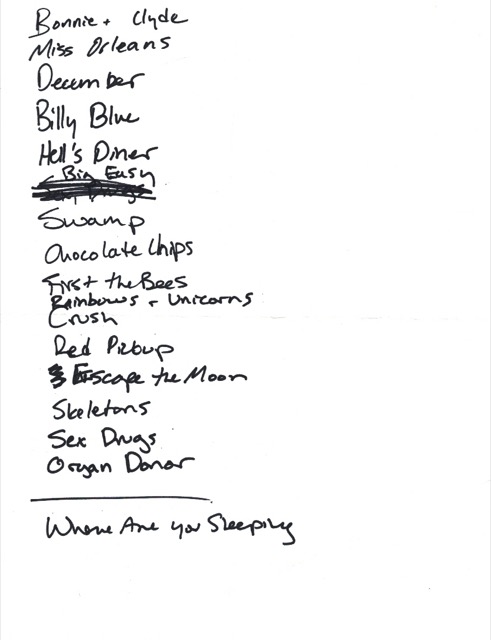 Bonnie + Clyde
Miss Orleans
December
Billy Blue
Hell's Diner
Big Easy
Swamp
Chocolate Chips
First the Bees
Rainbows + Unicorns
Crush
Red Pickup
Escape the Moon
Skeletons
Sex Drugs
Organ Donor
Where Are You Sleeping